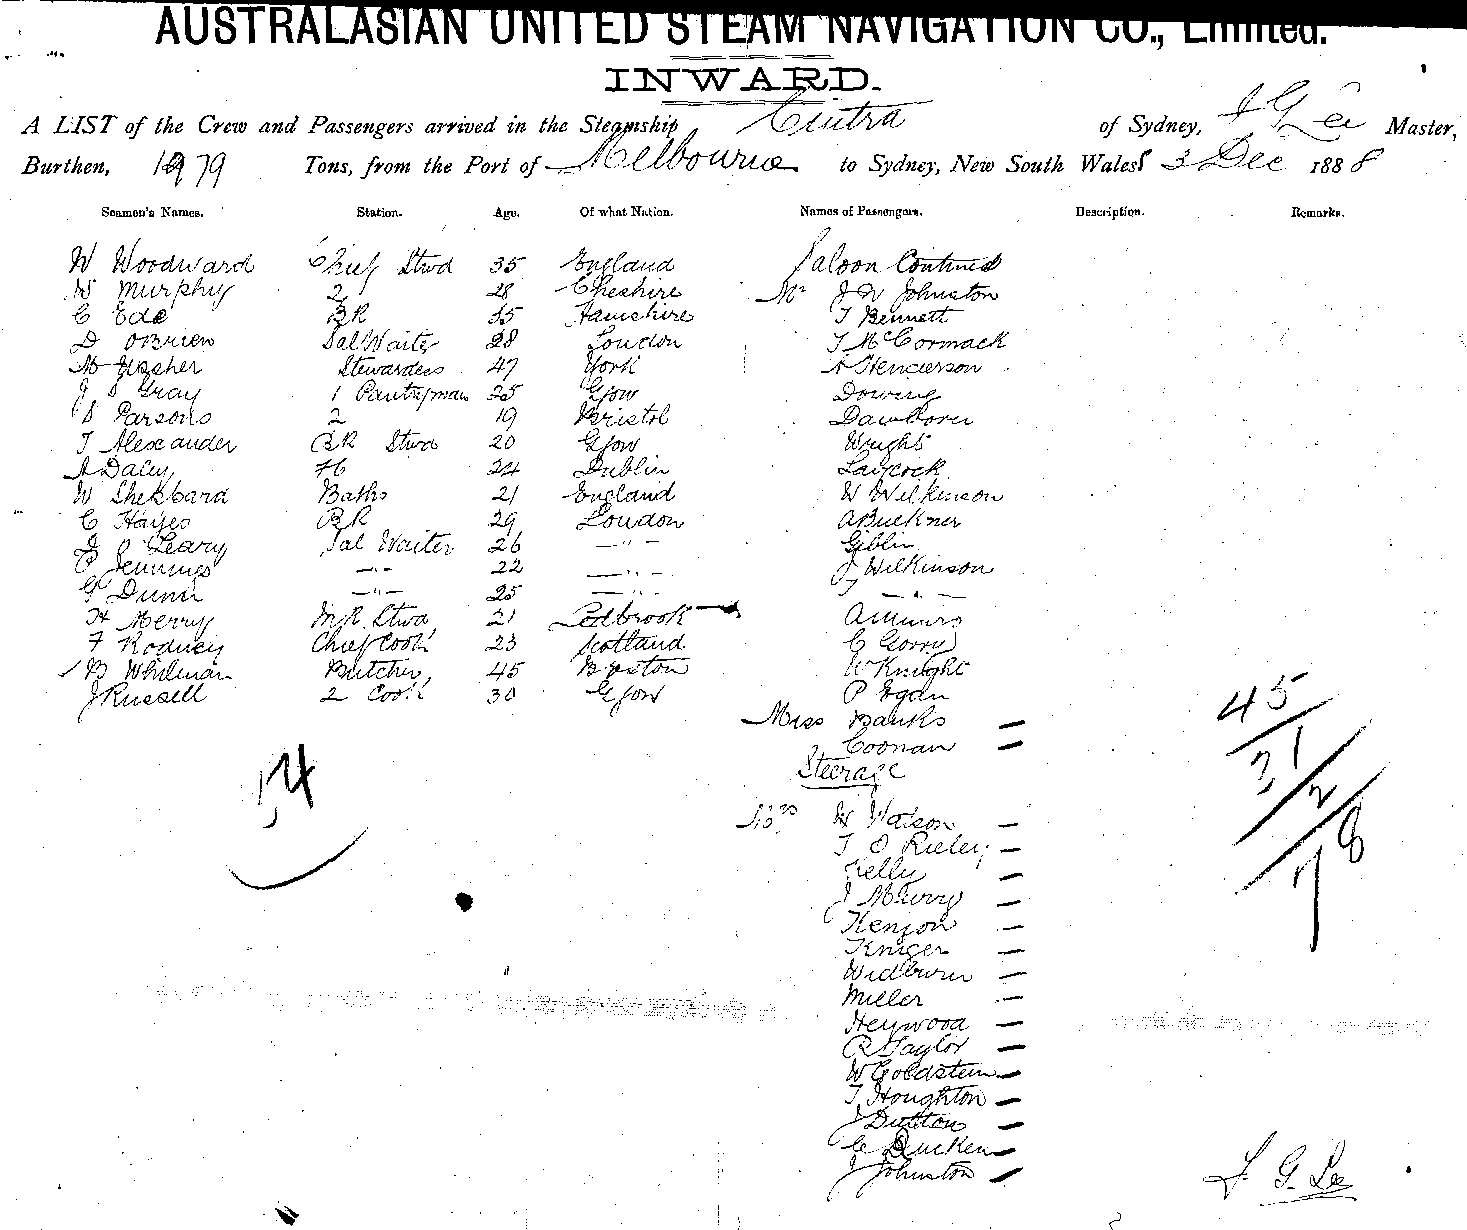 AUSTRALASIAN UNITED STEAM NAVIGATION CO., Limited.
INWARD.
A LIST of the Crew and Passengers arrived in the Steamship Cintra of Sydney, J G Lee Master,
Burthen, 1979 Tons, from the Port of Melbourne to Sydney, New South Wales 3 Dec 1888
Seamen's Names. Station. Age. Of what Nation. Names of Passengers. Description. Remarks.
W Woodward Chief Stwd 35 England Saloon Continued
W Murphy 2 28 Cheshire Mr J W Johnston
C Ede BR 35 Hamshire T Bennett
D OBrien Sal Waiter 28 London T McCormack
M Stewardess 47 York A Henderson
J S Gray 1 Pantryman 25 Gjow Dowing
S Parsons 2 19 Bristol Dawborn
T Alexander BR Stwd 20 Gjow Wright
A Daley 24 Dublin Laycock
W Shekbard Baths 21 England W Wilkinson
C Hayes BR 29 London A Buckner
J O Leary Sal Waiter 26 —"— Giblin
P Jennings —"— 22 —"— J Wilkinson
G Dunn —"— 25 —"— —"—
H Merry M R Stwd 21 Ledbrook
F Rodney Chief Cook 23 Scotland C Gorry
B Whitman Butcher 45 Boston W Knight
J Russell 2 Cook 30 Gjow P Egan
Miss Banks —
Coonan —
Steerage
W Watson —
T O Rieley —
Kelly —
J Murry —
Kenyon —
Kruger —
Widburn —
Miller —
Heywood —
R Taylor —
W Goldstein —
T Houghton —
J Dutton —
C Ducken —
J Johnston —
54
45
31
2
78
J G Lee